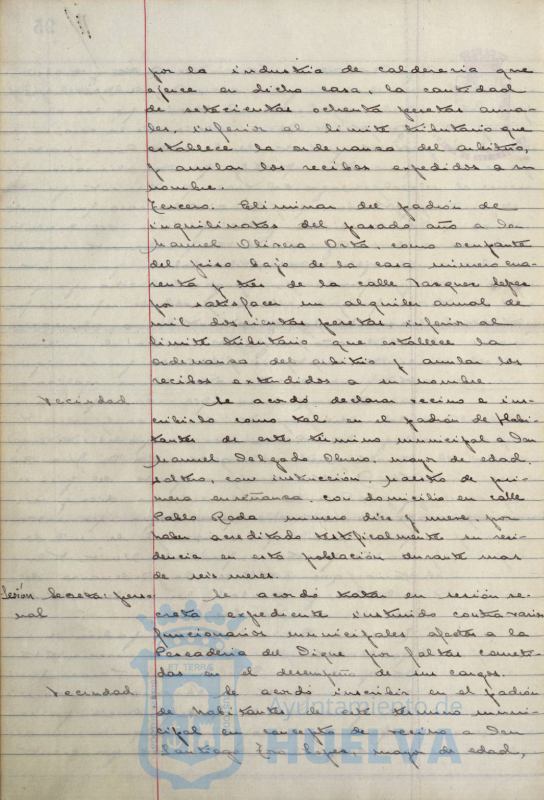 por la industria de caldereria que
ejerce en dicha casa, la cantidad
de setecientas ochenta pesetas anua-
les, inferior al limite tributario que
establece la ordenanza del arbitrio,
y anular los recibos expedidos a su
nombre.
Tercero. Eliminar del padrón de
inquilinatos del pasado año a Don
Manuel Olivera Orta, como ocupante
del piso bajo de la casa número cua-
renta y tres de la calle Vazquez Lopez
por satisfacer un alquiler anual de
mil doscientas pesetas, inferior al
limite tributario que establece la
ordenanza del arbitrio y anular los
recibos extendidos a su nombre.
Vecindad Se acordó declarar vecino e ins-
cribirlo como tal en el padrón de habi-
tantes de este término municipal a Don
Manuel Delgado mayor de edad,
soltero, con instrucción, Maestro de pri-
mera enseñanza, con domicilio en calle
Pablo Rada numero diez y nueve, por
haber acreditado testificalmente su resi-
dencia en esta población durante mas
de seis meses.
Sesión Secreta: perso Se acordó tratar en sesión se-
nal creta expediente instruido contra varios
funcionarios municipales afectos a la
Pescaderia del Dique por faltas cometi-
das en el desempeño de sus cargos.
Vecindad Se acordó inscribir en el padrón
de habitantes de este término muni-
cipal en concepto de vecino a Don
Santiago Lopez, mayor de edad,
ET TERRÆ
Ayuntamiento de
HUELVA